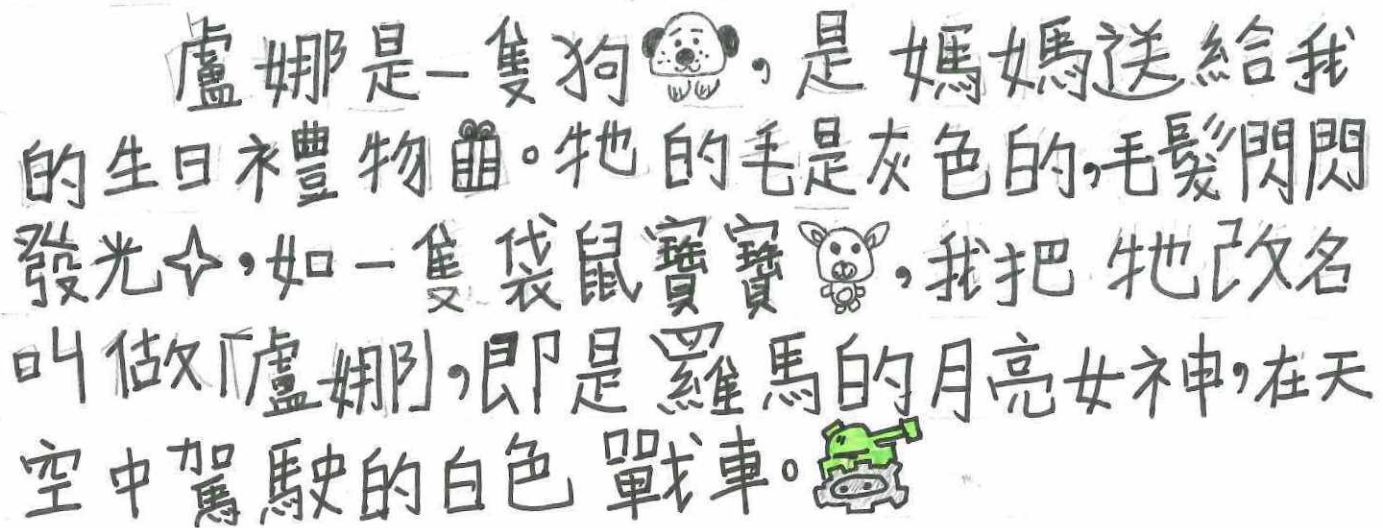 盧娜是一隻狗，是媽媽送給我
的生日禮物。牠的毛是灰色的，毛髮閃閃
發光，如一隻袋鼠寶寶，我把牠改名
叫做「盧娜」，即是羅馬的月亮女神，在天
空中駕駛的白色戰車。